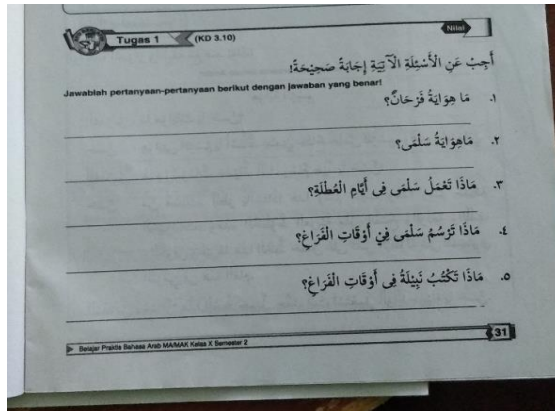 Nilai
Tugas 1 (KD 3.10)
أَجِبْ عَنِ الْأَسْئِلَةِ الْآتِيَةِ إِجَابَةً صَحِيْحَةً!
Jawablah pertanyaan-pertanyaan berikut dengan jawaban yang benar!
١. مَا هِوَايَةُ فَرْحَانٌ؟
٢. مَاهِوَايَةُ سَلْمَى؟
٣. مَاذَا تَعْمَلُ سَلْمَى فِى أَيَّامِ الْعُطْلَةِ؟
٤. مَاذَا تَرْسُمُ سَلْمَى فِيْ أَوْقَاتِ الْفَرَاغِ؟
٥. مَاذَا تَكْتُبُ نَبِيْلَةُ فِى أَوْقَاتِ الْفَرَاغِ؟
Belajar Praktis Bahasa Arab MA/MAK Kelas X Semester 2
31